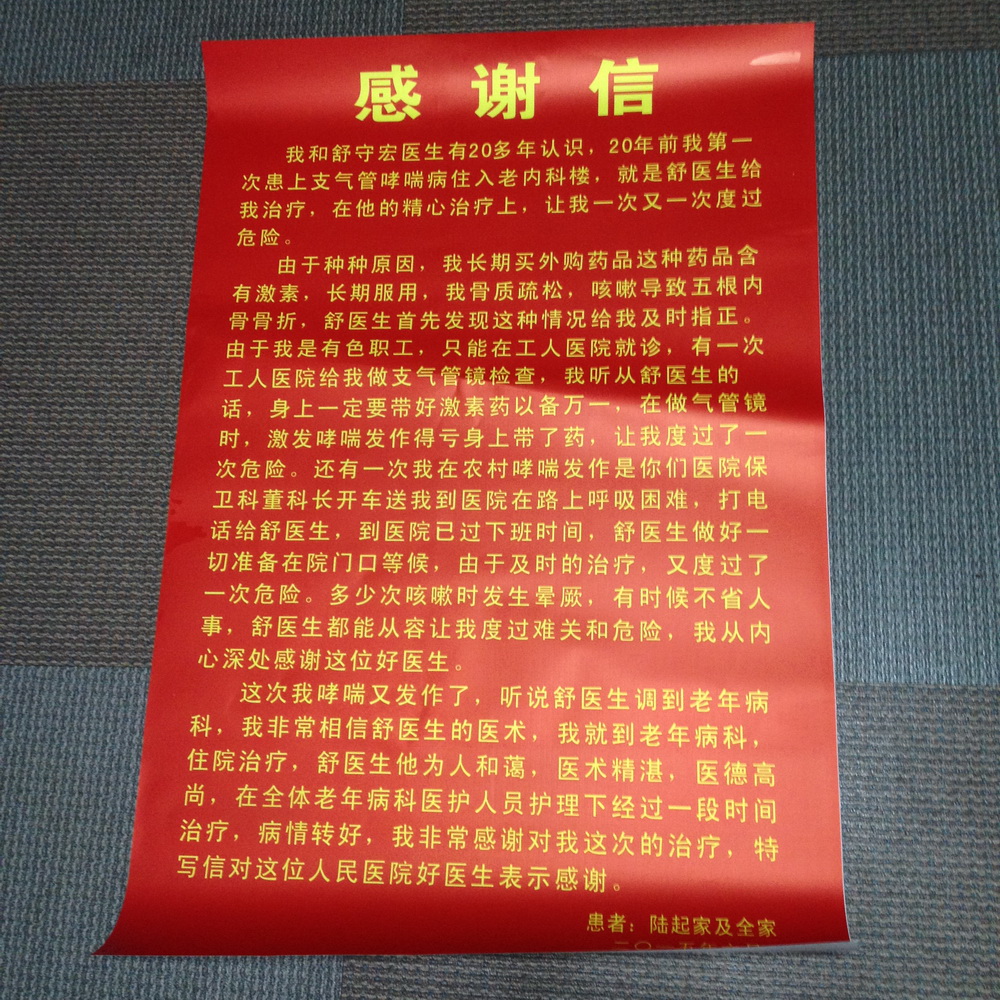 感谢信
我和舒守宏医生有20多年认识，20年前我第一
次患上支气管哮喘病住入老内科楼，就是舒医生给
我治疗，在他的精心治疗上，让我一次又一次度过
危险。
由于种种原因，我长期买外购药品这种药品含
有激素，长期服用，我骨质疏松，咳嗽导致五根内
骨骨折，舒医生首先发现这种情况给我及时指正。
由于我是有色职工，只能在工人医院就诊，有一次
工人医院给我做支气管镜检查，我听从舒医生的
话，身上一定要带好激素药以备万一，在做气管镜
时，激发哮喘发作得亏身上带了药，让我度过了一
次危险。还有一次我在农村哮喘发作是你们医院保
卫科董科长开车送我到医院在路上呼吸困难，打电
话给舒医生，到医院已过下班时间，舒医生做好一
切准备在院门口等候，由于及时的治疗，又度过了
一次危险。多少次咳嗽时发生晕厥，有时候不省人
事，舒医生都能从容让我度过难关和危险，我从内
心深处感谢这位好医生。
这次我哮喘又发作了，听说舒医生调到老年病
科，我非常相信舒医生的医术，我就到老年病科，
住院治疗，舒医生他为人和蔼，医术精湛，医德高
尚，在全体老年病科医护人员护理下经过一段时间
治疗，病情转好，我非常感谢对我这次的治疗，特
写信对这位人民医院好医生表示感谢。
患者：陆起家及全家
二〇一五年